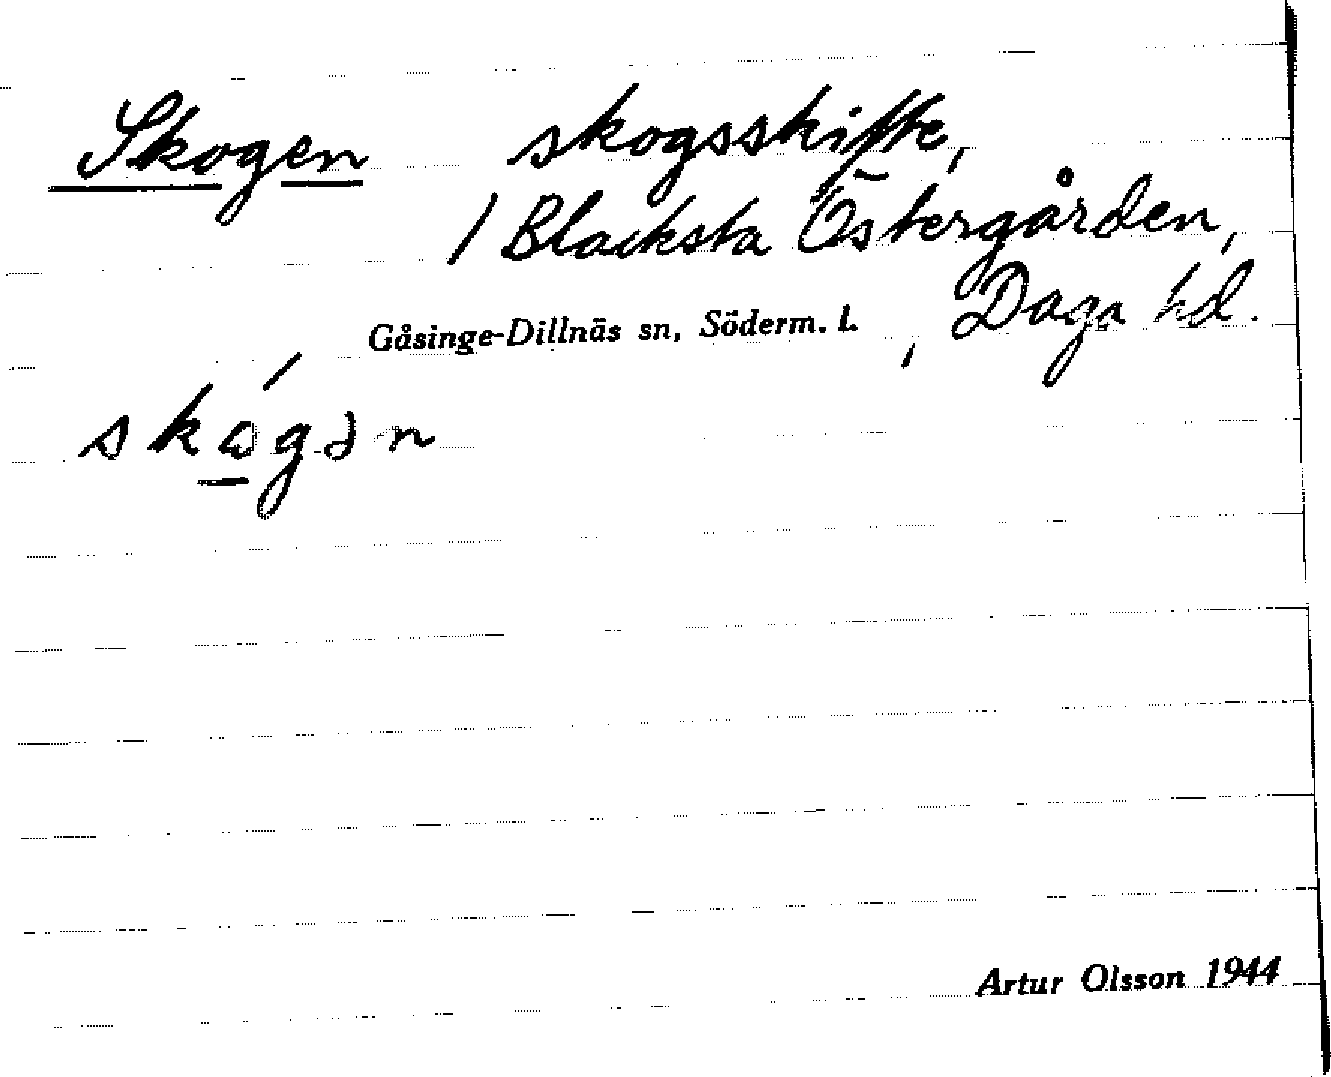 Skogen skogsskifte,
/ Blacksta Östergården,
Gåsinge-Dillnäs sn, Söderm. l. , Daga hd.
Artur Olsson 1944